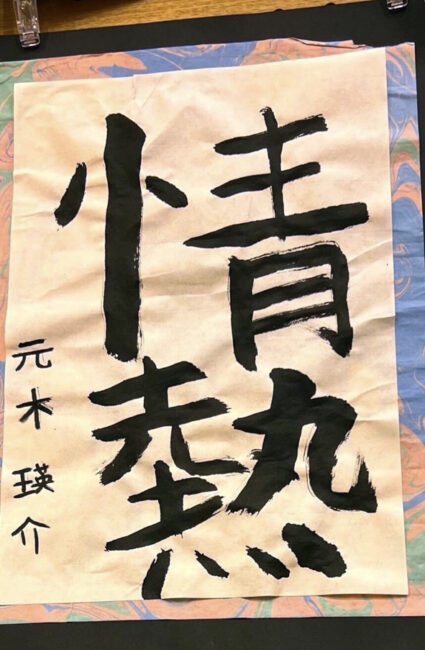 情熱
元木瑛介